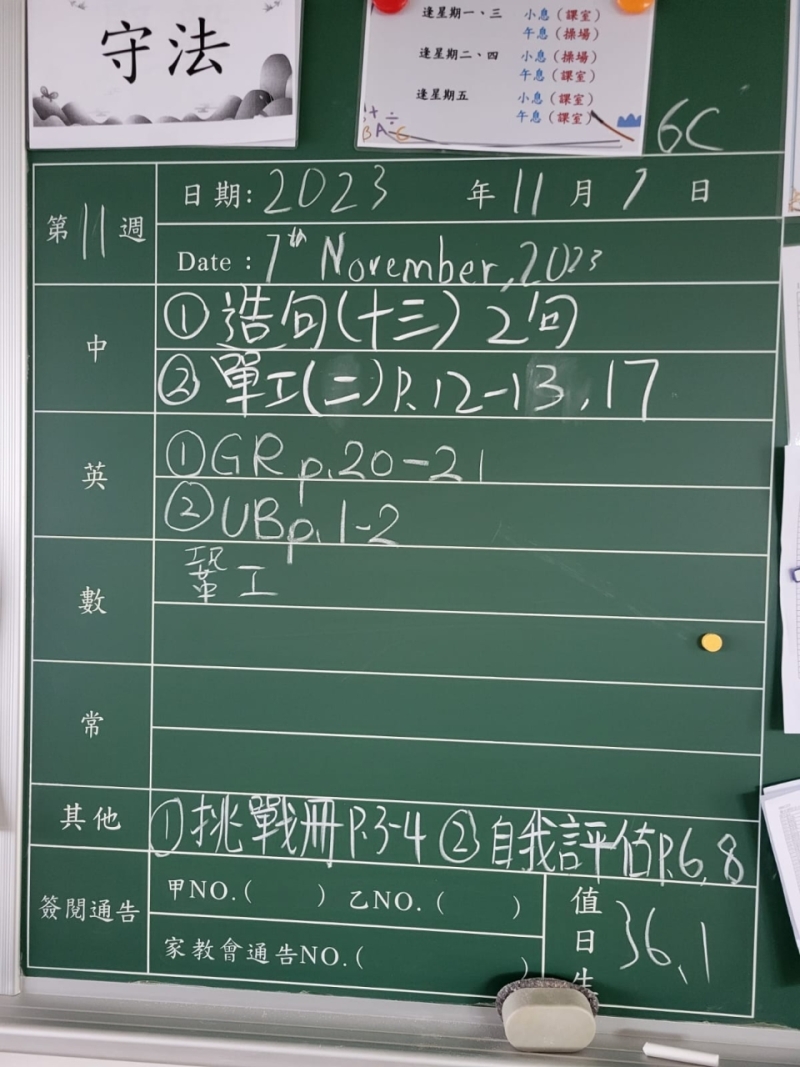 守法
逢星期一、三 小息（課室）
午息（操場）
逢星期二、四 小息（操場）
午息（課室）
逢星期五 小息（課室）
午息（課室）
6C
第11週
日期: 2023 年 11 月 7 日
Date : 7th November, 2023
中
①造句(十三) 2句
②單工(二)P.12-13,17
英
①GR p.20-21
②UB p.1-2
數
工
常
其他
①挑戰冊P.3-4 ②自我評估P.6,8
簽閱通告
甲NO.( ) 乙NO.( )
家教會通告NO.( )
值日生 36,1